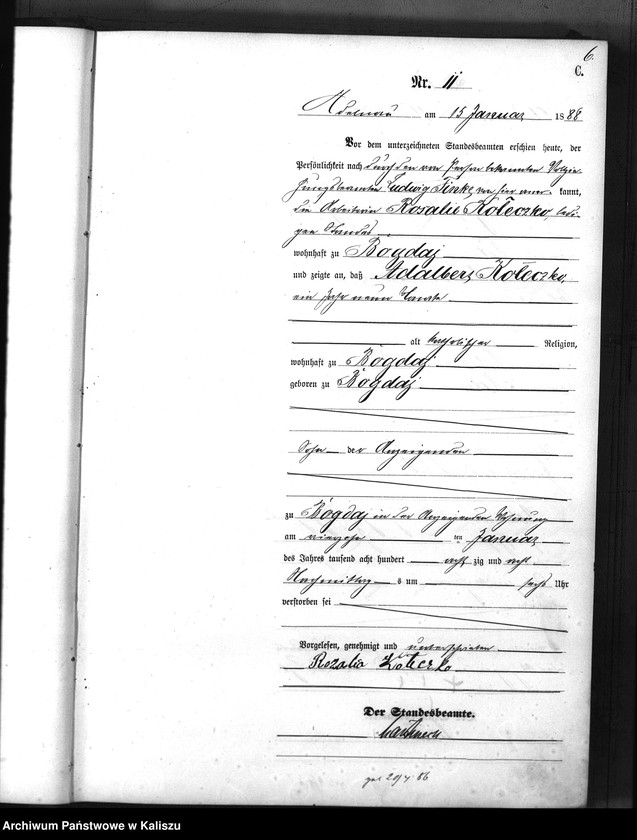 6.
C.
Nr. 11
Adelnau am 15 Januar 1888
Vor dem unterzeichneten Standesbeamten erschien heute, der
Persönlichkeit nach durch den von Person bekannten Vollzie-
hungsbeamten Ludwig Finke von hier aner- kannt,
die Arbeiterin Rosalie Kołeczko, ledi-
gen Standes
wohnhaft zu Bogdaj
und zeigte an, daß Adalbert Kołeczko,
ein Jahr neun Monate
alt katholischer Religion,
wohnhaft zu Bogdaj
geboren zu Bogdaj
Sohn der Anzeigenden
zu Bogdaj in der Anzeigenden Wohnung
am vierzehn ten Januar
des Jahres tausend acht hundert acht zig und acht
Nachmittags um sechs Uhr
verstorben sei
Vorgelesen, genehmigt und unterschrieben
Rozalia Kołeczko
Der Standesbeamte.
Archiwum Państwowe w Kaliszu